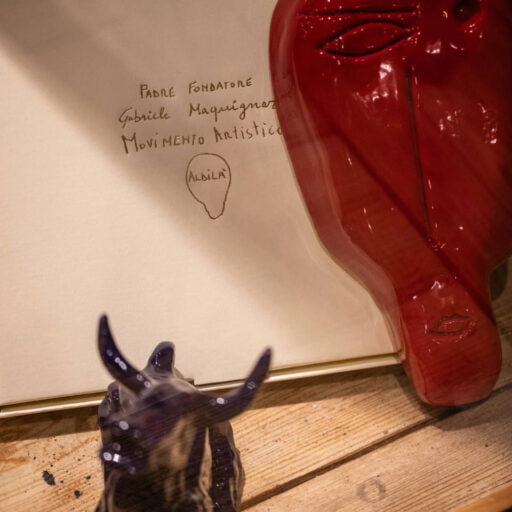 PADRE FONDATORE
Gabriele Maquignaz
MOVIMENTO ARTISTICO
ALDILÀ